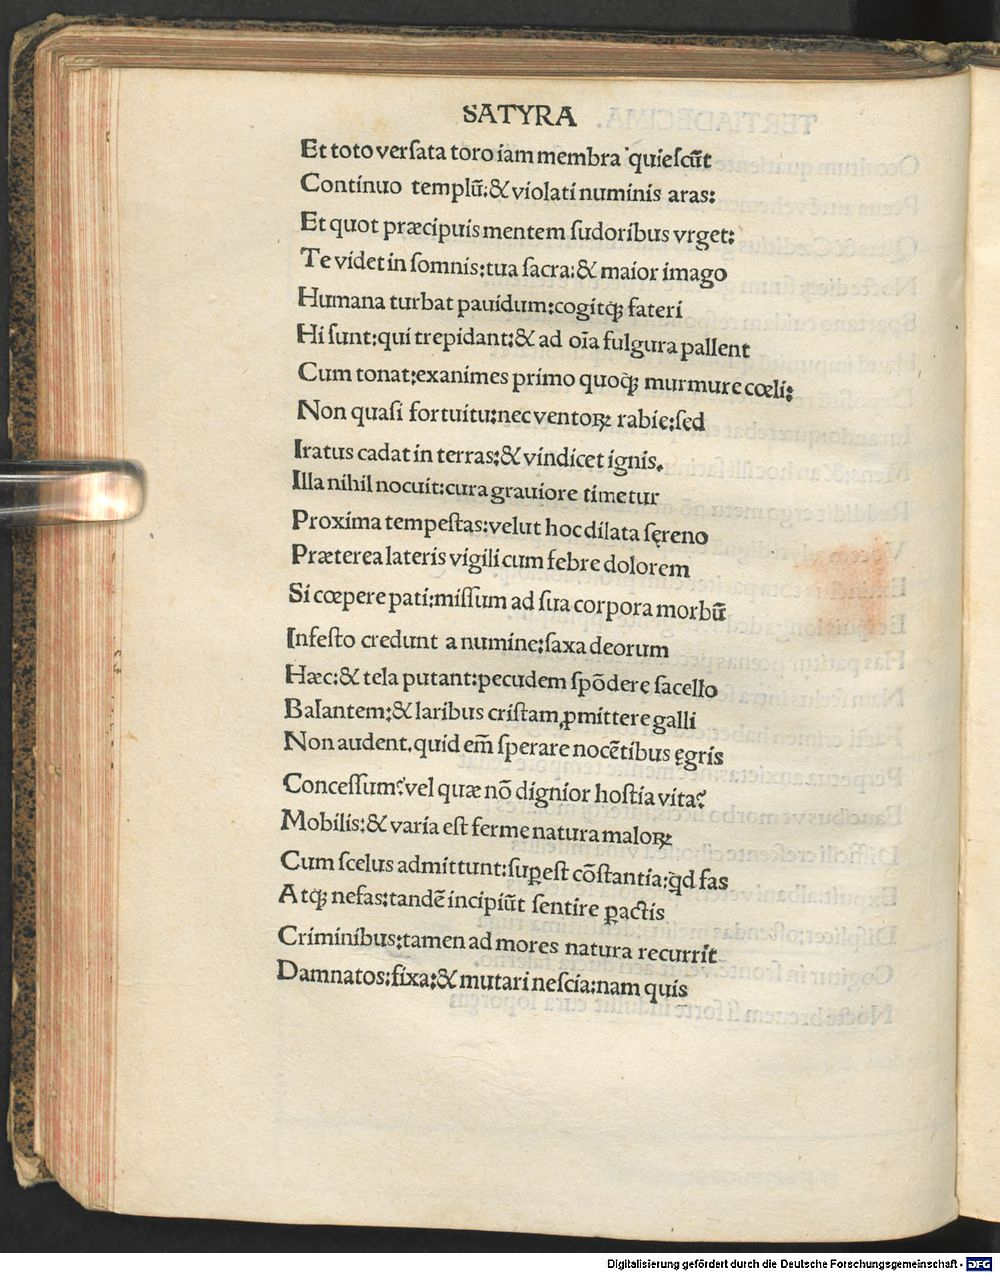 SATYRA
Et toto verſata toro iam membra quieſcūt
Continuo templū:& violati numinis aras:
Et quot præcipuis mentem ſudoribus vrget:
Te videt in ſomnis:tua ſacra:& maior imago
Humana turbat pauidum:cogitqꝫ fateri
Hi ſunt:qui trepidant:& ad oīa fulgura pallent
Cum tonat:exanimes primo quoqꝫ murmure cœli:
Non quaſi fortuitu:nec ventoꝝ rabie:ſed
Iratus cadat in terras:& vindicet ignis.
Illa nihil nocuit:cura grauiore timetur
Proxima tempeſtas:velut hoc dilata ſęreno
Præterea lateris vigili cum febre dolorem
Si cœpere pati:miſſum ad ſua corpora morbū
Infeſto credunt a numine:ſaxa deorum
Hæc:& tela putant:pecudem ſpōderę ſacello
Balantem:& laribus criſtam ꝓmittere galli
Non audent.quid em̄ ſperare nocētibus ęgris
Conceſſum?vel quæ nō dignior hoſtia vita?
Mobilis:& varia eſt ferme natura maloꝝ
Cum ſcelus admittunt:ſuꝑeſt cōſtantia:qd fas
Atqꝫ nefas:tandē incipiūt ſentire ꝑactis
Criminibus:tamen ad mores natura recurrit
Damnatos:fixa:& mutari neſcia:nam quis
Digitalisierung gefördert durch die Deutsche Forschungsgemeinschaft - DFG